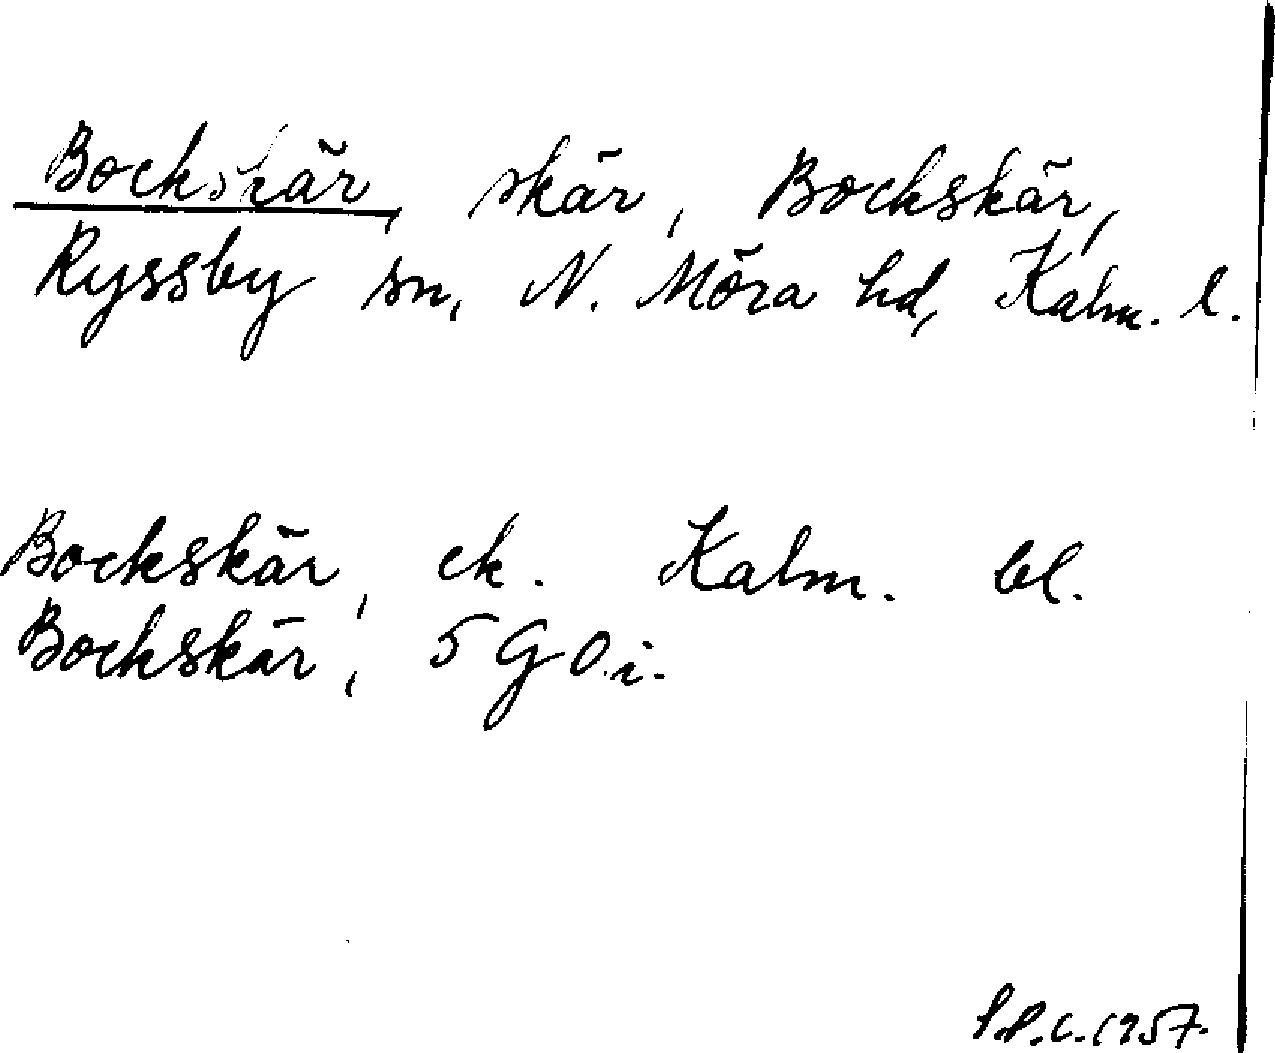 Bockskär, skär, Bockskär,
Ryssby sn, N. Möra hd, Kalm. l.
Bockskär, ek. Kalm. bl.
Bockskär, 5 G O.i.
1957.